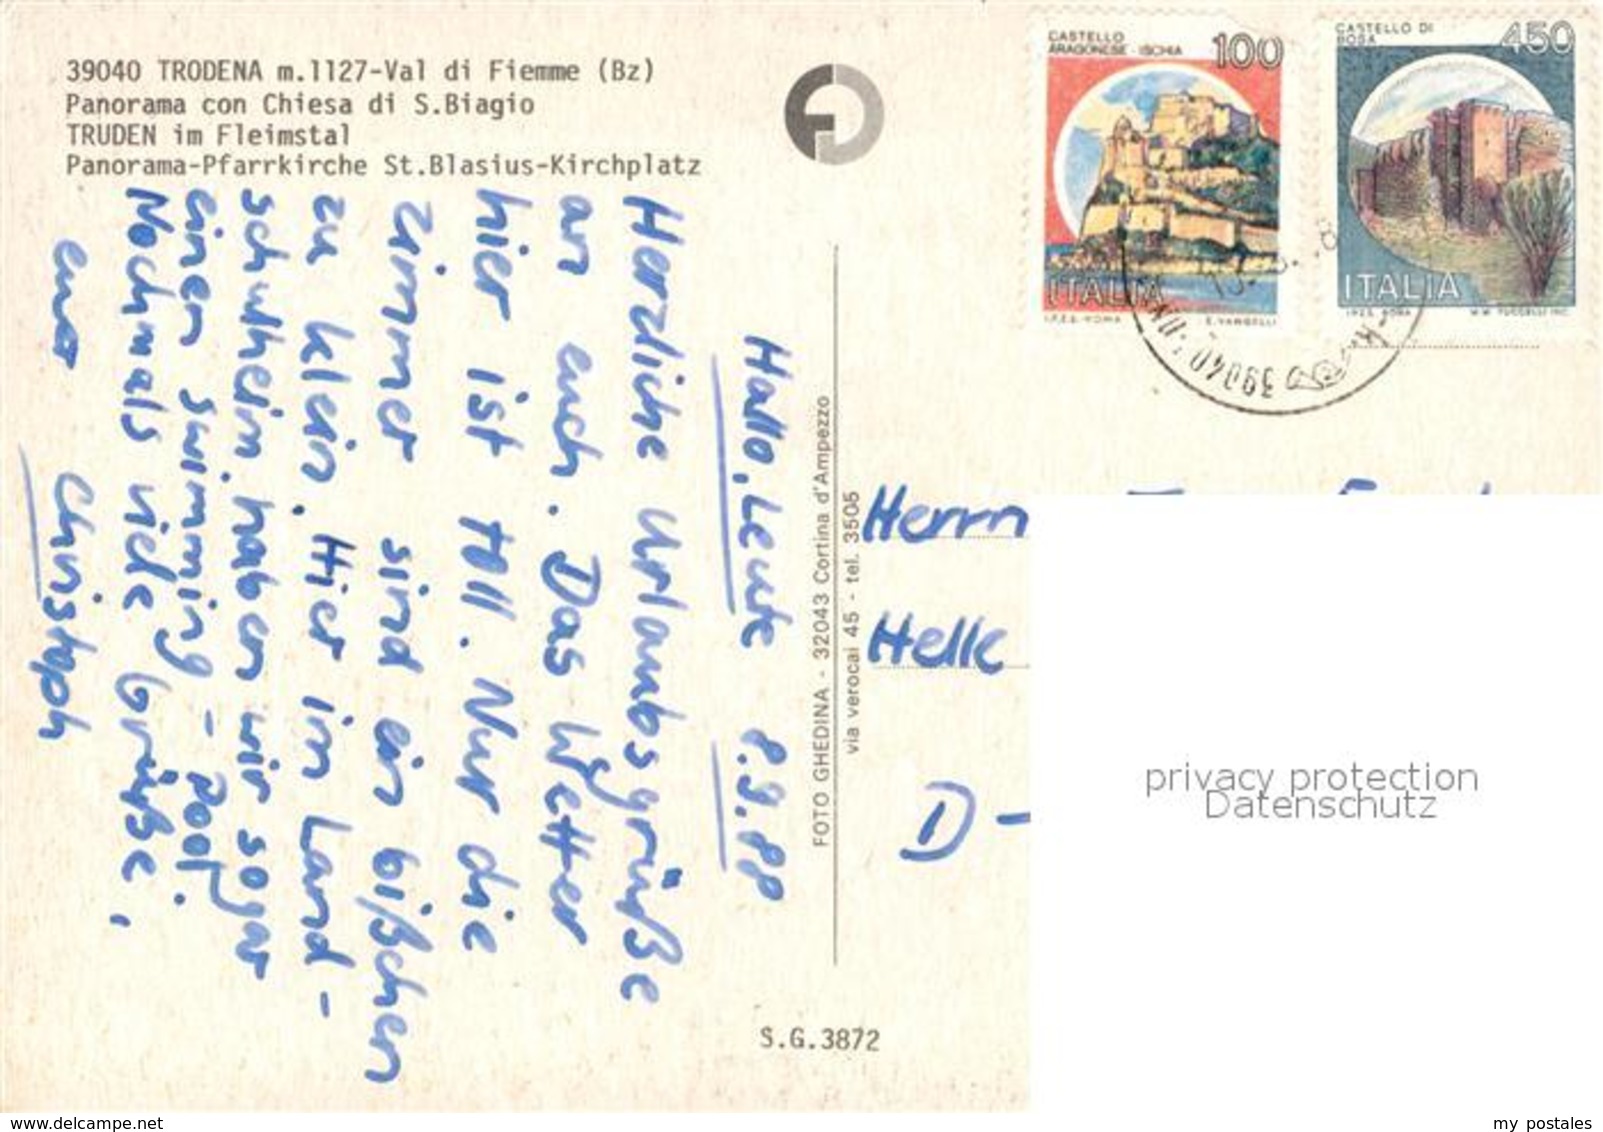 39040 TRODENA m.1127-Val di Fiemme (Bz)
Panorama con Chiesa di S.Biagio
TRUDEN im Fleimstal
Panorama-Pfarrkirche St.Blasius-Kirchplatz
CASTELLO
ARAGONESE - ISCHIA
100
ITALIA
I.P.Z.S. - ROMA E. VANGELLI
CASTELLO DI
BOSA
450
ITALIA
I.P.Z.S. ROMA M.M. TUCCELLI INC.
39040
Hallo, Leute 8.9.88
Herzliche Urlaubsgrüße
an euch. Das Wetter
hier ist toll. Nur die
Zimmer sind ein bißchen
zu klein. Hier im Land-
schulheim haben wir sogar
einen Swimming-Pool.
Nochmals viele Grüße,
euer Christoph
FOTO GHEDINA - 32043 Cortina d'Ampezzo
via verocai 45 - tel. 3505
Herrn
Helle
D-
privacy protection
Datenschutz
S.G.3872
www.delcampe.net
my postales